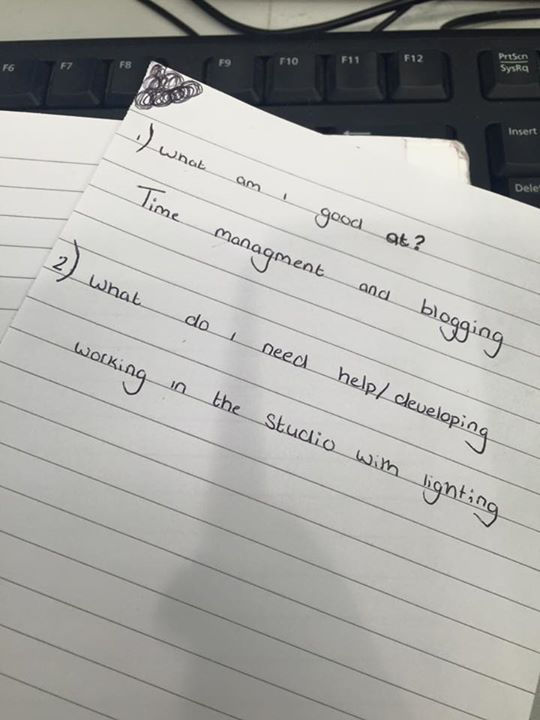 F6
F7
F8
F9
F10
F11
F12
PrtScn
SysRq
Insert
Dele
1.) What am i good at?
Time managment and blogging
2) What do i need help/developing
working in the studio with lighting